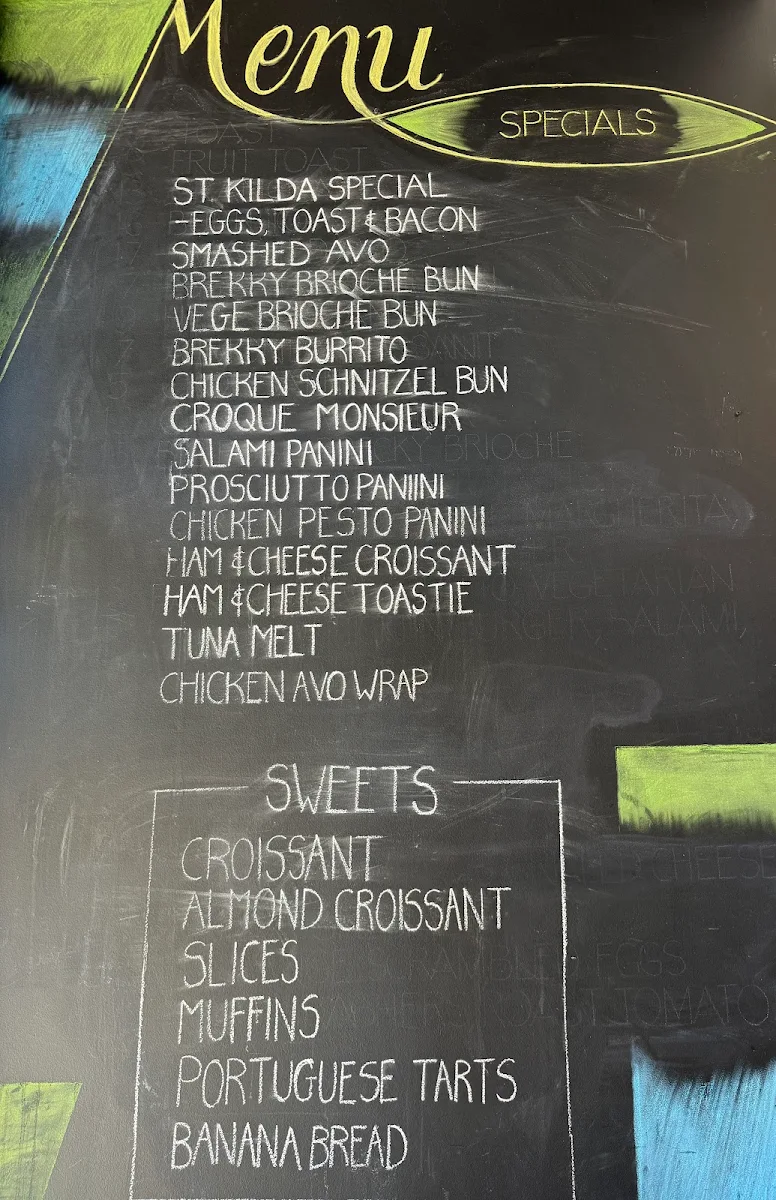 Menu
SPECIALS
TOAST
FRUIT TOAST
ST. KILDA SPECIAL
-EGGS, TOAST & BACON
SMASHED AVO
BREKKY BRIOCHE BUN
VEGE BRIOCHE BUN
BREKKY BURRITO
CHICKEN SCHNITZEL BUN
CROQUE MONSIEUR
SALAMI PANINI
BRIOCHE
PROSCIUTTO PANIINI
CHICKEN PESTO PANINI
MARGHERITA,
HAM & CHEESE CROISSANT
VEGETARIAN
HAM & CHEESE TOASTIE
SALAMI,
TUNA MELT
CHICKEN AVO WRAP
SWEETS
CROISSANT
CHEESE
ALMOND CROISSANT
SLICES
SCRAMBLED EGGS
MUFFINS
TOMATO
PORTUGUESE TARTS
BANANA BREAD